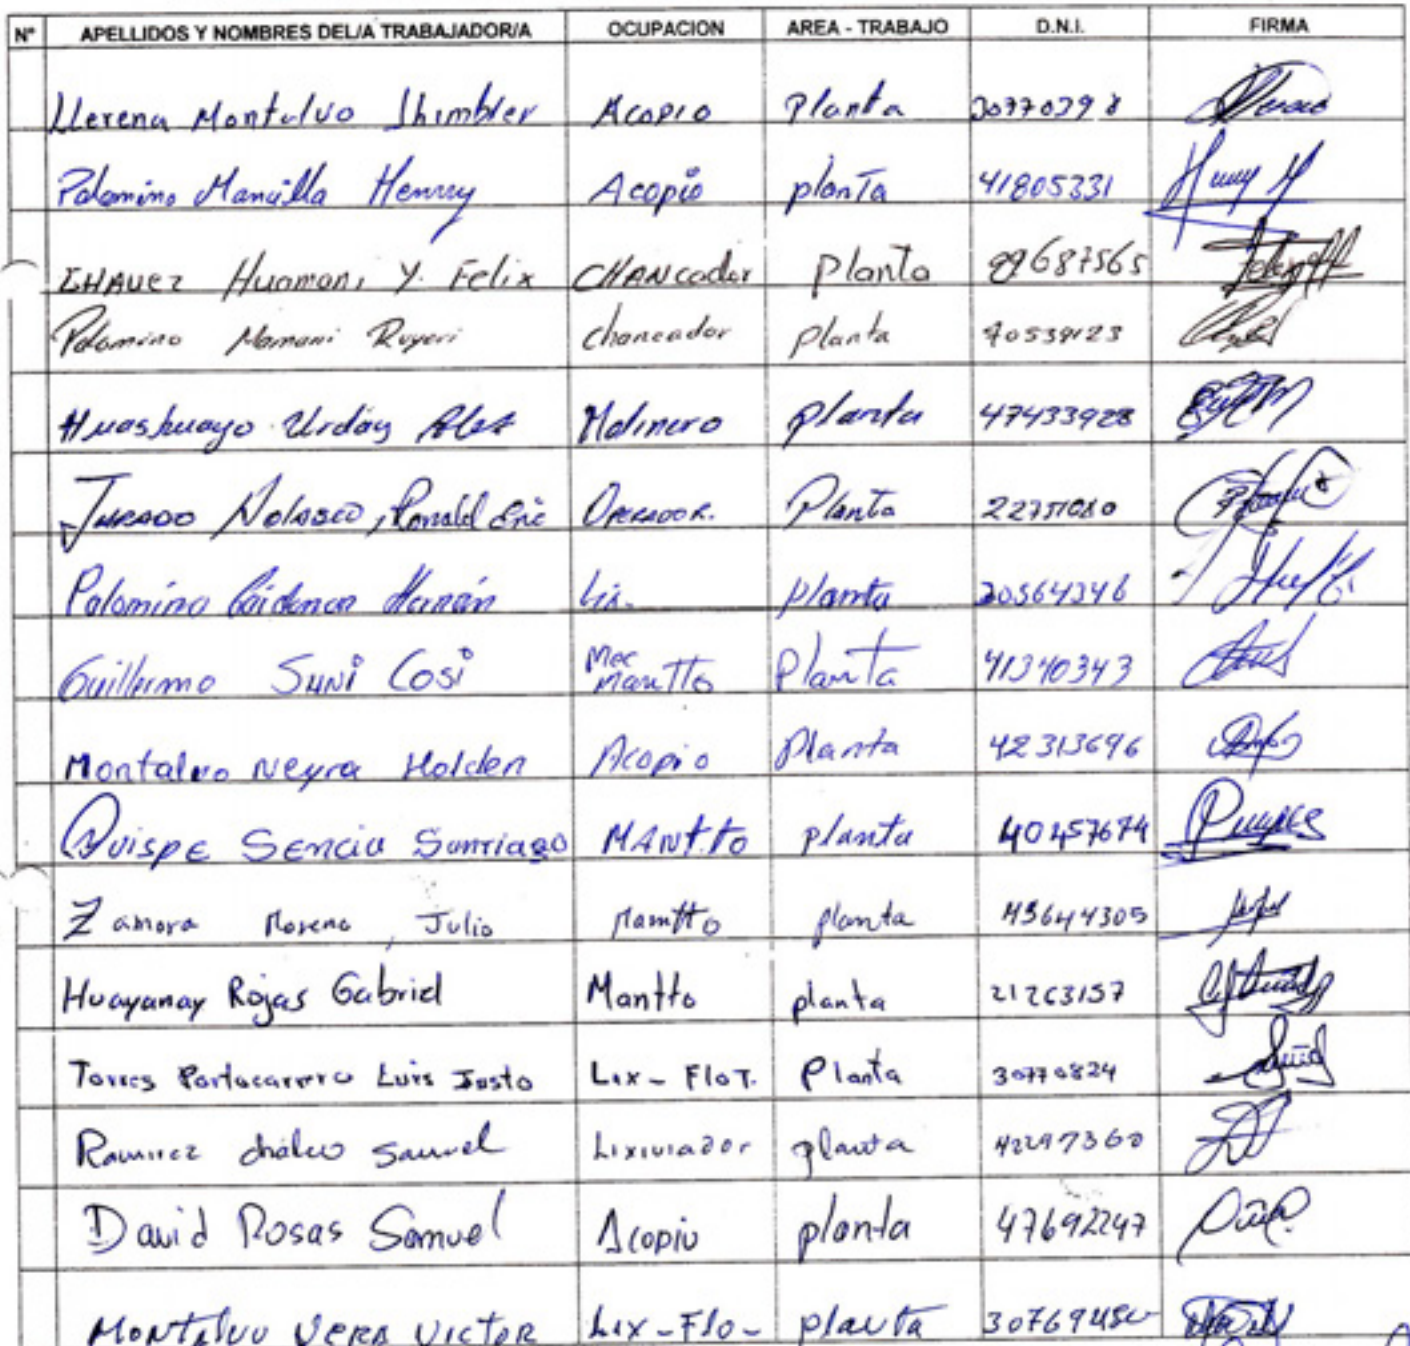 N° APELLIDOS Y NOMBRES DEL/A TRABAJADOR/A OCUPACION AREA - TRABAJO D.N.I. FIRMA
Llerena Montalvo Jhimbler Acopio Planta 30770398
Palomino Mancilla Henrry Acopio planTa 41805331
CHAUEZ Huamani Y. Felix CHANCador Planta
Palomino Mamani Rogeri Chancador Planta
Huashuayo Urday Alex Molinero planta 47433928
JURADO Nolasco, Ronald Eric OPERADOR. Planta
Palomino Cárdenas Hernán Lix. planta 30564346
Guillermo SUNi Cosi Mec ManTTo PlanTa 41340343
Montalvo Neyra Holden Acopio Planta 42313696
QuispE Sencia Santiago MANtto planta 40457674
Zamora Moreno, Julio Mantto planta 45644305
Huayanay Rojas Gabriel Mantto planta 21263157
Torres Portocarrero Luis Justo Lix - FloT. Planta 30770824
Ramirez chalco Samuel Lixiviador planta 42297360
David Rosas Samuel Acopio planta 47692247
MONTALVO VERA VICTOR Lix - Flo - planta